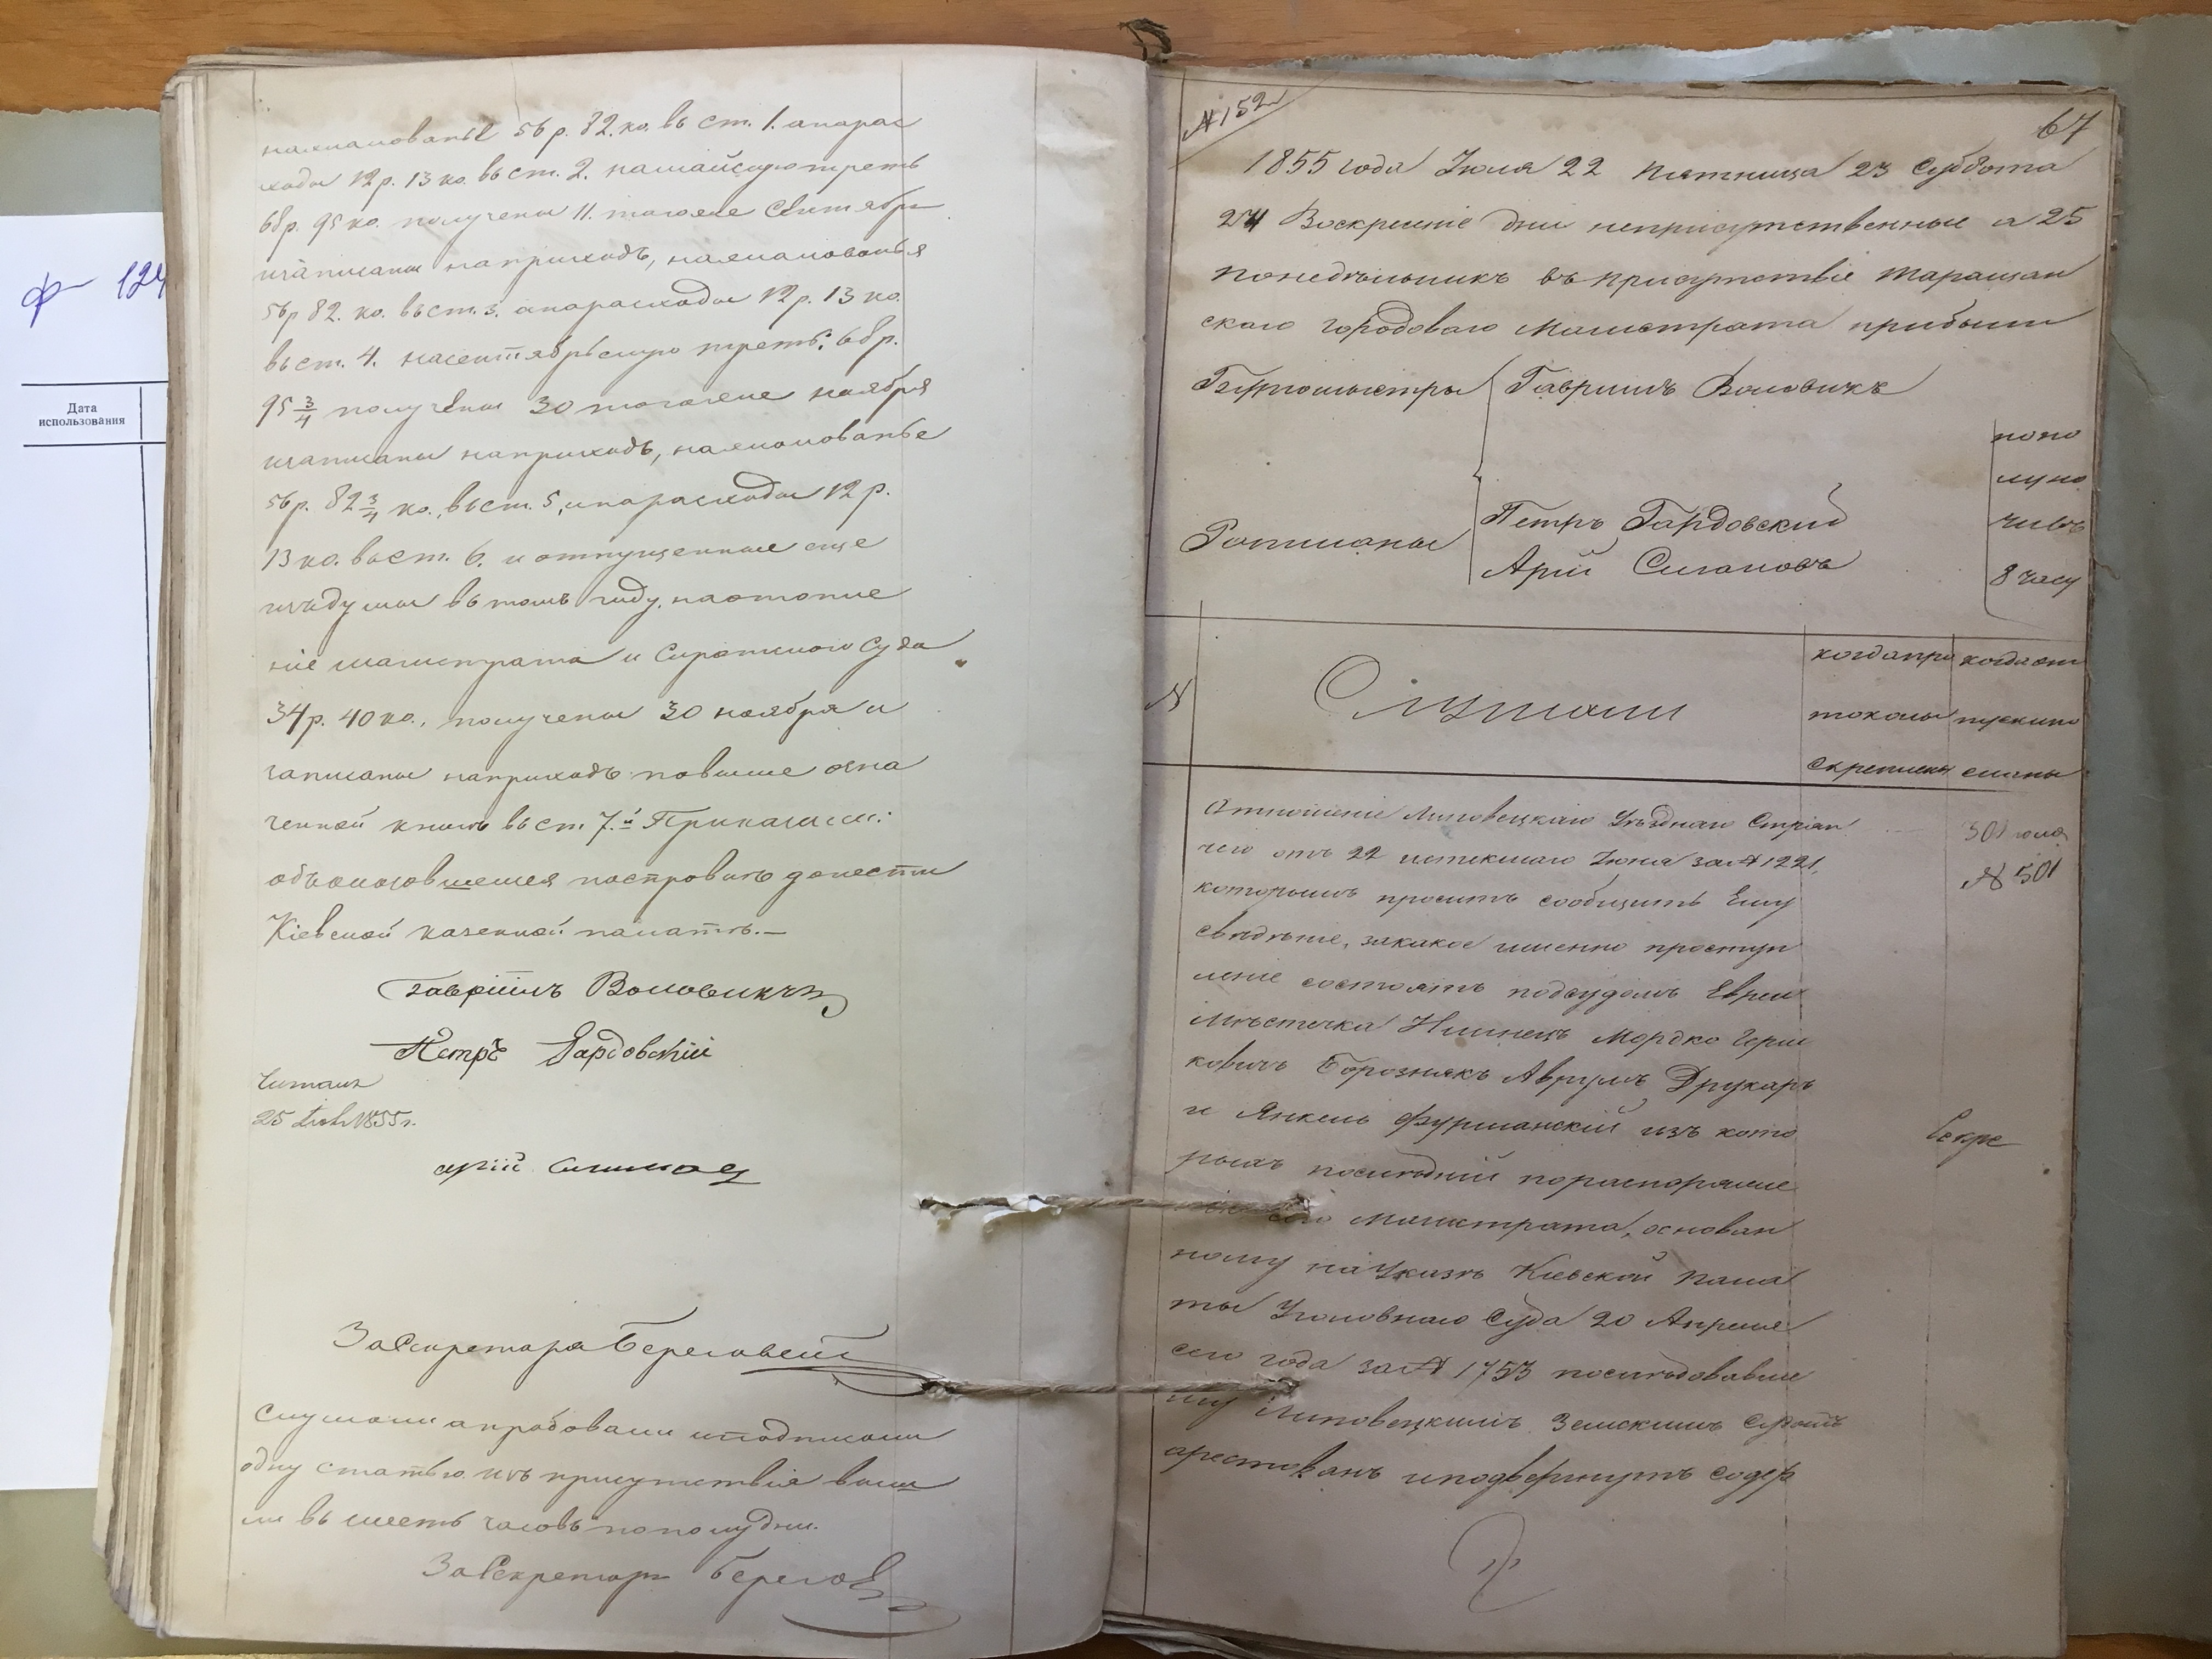 ф 124
Дата
использования
нажалованье 56 р. 82. ко. въ ст. 1. анарас
ходы 12 р. 13 ко. въ ст. 2. намайскую треть
68 р. 95 ко. получены 11. тогоже Сентября
изаписаны наприходъ, нажалованья
56 р 82. ко. въ ст. 3. анарасходы 12 р. 13 ко.
въ ст. 4. насентябрьскую треть: 68 р.
95 3/4 получены 30 тогоже ноября
изаписаны наприходъ, нажалованье
56 р. 82 3/4 ко., въ ст. 5, инарасходы 12 р.
13 ко. въ ст. 6. и отпущенные еще
изъдумы въ томъ году, наотопле
ніе магистрата и Сиротскаго Суда
34 р. 40 ко., получены 30 ноября и
записаны наприходъ повыше озна
ченной книгѣ въ ст 7.й Приказали:
объоказавшемся поспровкѣ донести
Кіевской казенной палатѣ.—
Гавріилъ Воловикъ
Петръ Гардовскій
Читалъ
25 1855 г.
Арій
За Секретаря Береговскій
Слушали апробовали иподписали
одну статью. изъ присутствія выш
ли въ шесть часовъ пополудни.
За Секретаря Берегов
№ 152
67
1855 года Іюля 22 пятница 23 Суббота
24 Воскресніе дни неприсутственные а 25
понедѣльникъ въ присутствіе Таращан
скаго городоваго Магистрата прибыли
Бургомистры Гавріилъ Воловикъ
Ратманы
Петръ Гардовский
Арій Сигаловъ
попо
луно
чивъ
8 часу
№
Слушали
когдапро
токолы
скреплены
когдаот
пускипо
сланы
Отношеніе Липовецкаго Уѣзднаго Стряп
чего отъ 22 истекшаго Іюня за № 1221,
которымъ проситъ сообщить Ему
свѣдѣніе, закакое именно преступ
леніе состоятъ подсудомъ Евреи
мѣстечка Ильинецъ Мордко Герш
ковичъ Борознякъ Аврумъ Друкаръ
и Янкель Фурманскій изъ кото
рыхъ послѣдній пораспоряже
сего Магистрата, основан
ному на Указѣ Кіевской пала
ты Уголовнаго Суда 20 Апреля
сего года за № 1753 послѣдовавше
му Липовецкимъ Земскимъ Судомъ
арестованъ иподвергнутъ содер
30 Іюля
№ 501
Секре